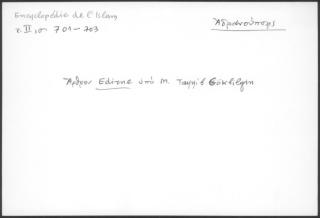 Encyclopédie de l'Islam
τ. II, σσ 701-703
Ἀδριανούπολις
Ἄρθρον Edirne ὑπό M. Tayyib Gökbilgin